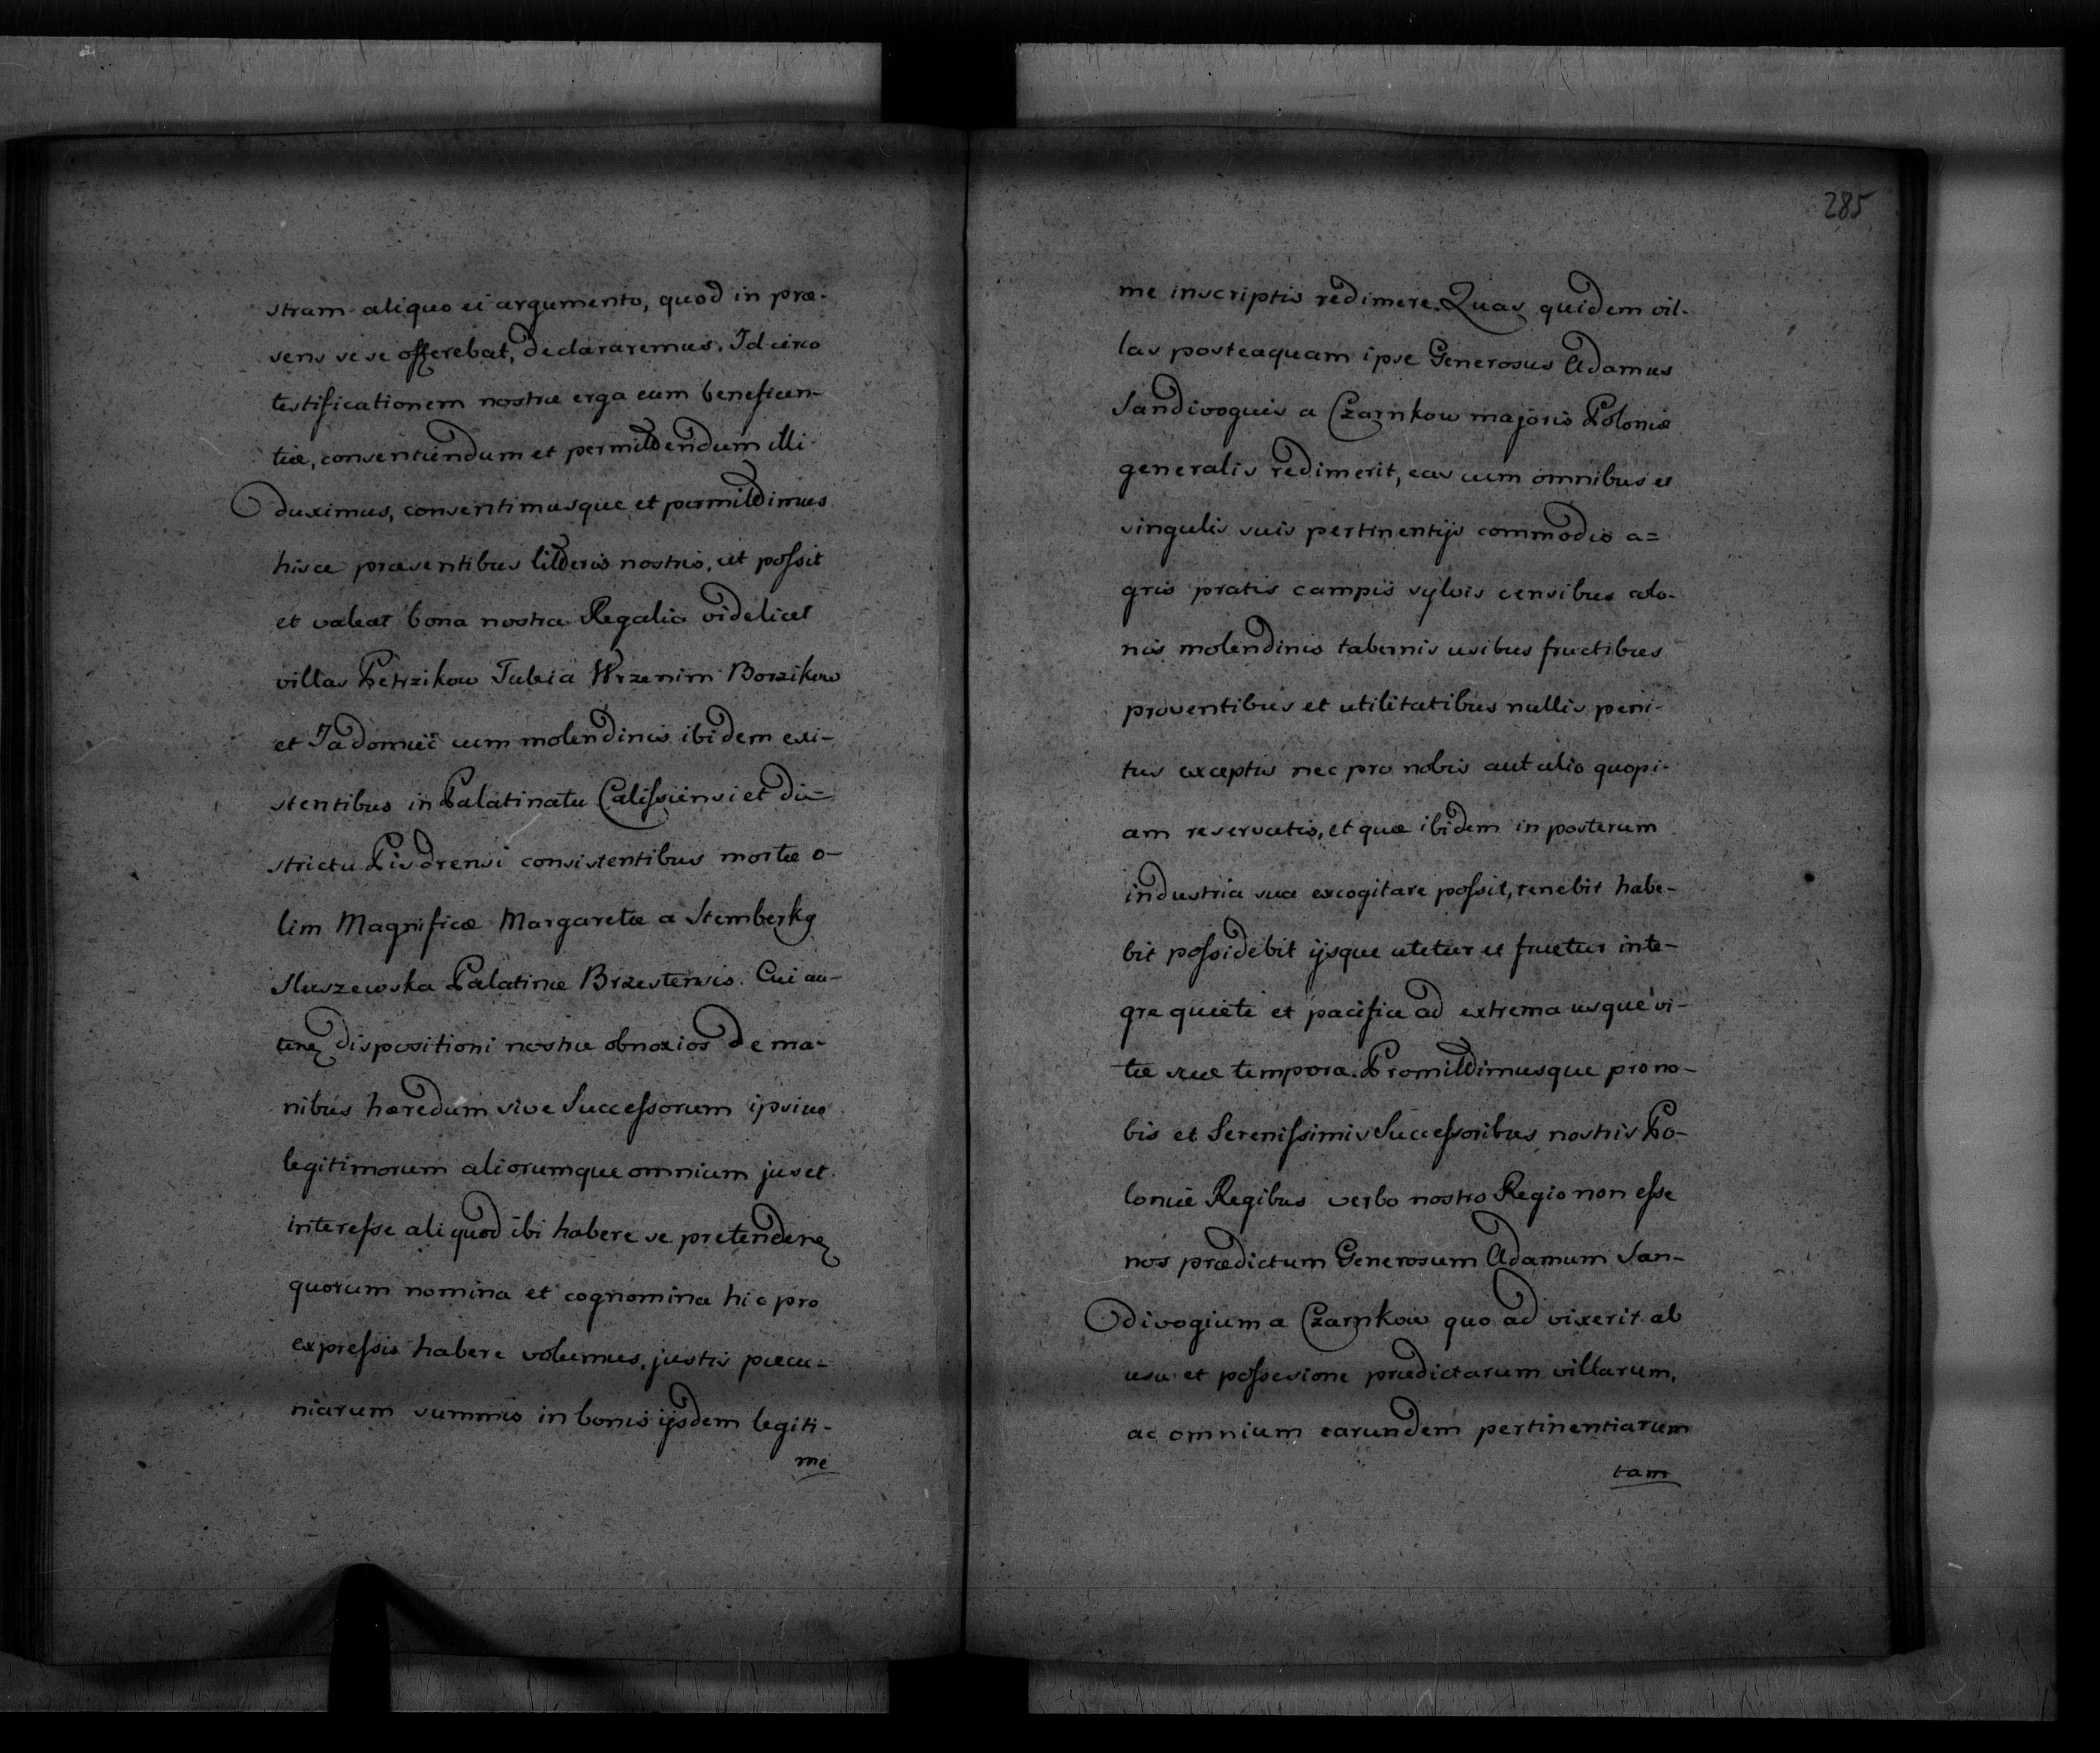 stram aliquo ei argumento, quod in præ-
sens sese offerebat, declararemus. Id circo
testificationem nostræ erga eum beneficen-
tiæ, consentiendum et permittendum illi
duximus, consentimusque et permittimus
hisce præsentibus litteris nostris, ut possit
et valeat bona nostra Regalia videlicet
villas Petrzikow Tulcia Wrzenim Borzikow
et cum molendinis ibidem exi-
stentibus in Palatinatu Calissiensi et di-
strictu Pisdrensi consistentibus mortæ o-
lim Magnificæ Margaretæ a Stemberkg
Sluszewska Palatinæ Brzestensis. Cui au-
dispositioni nostræ obnoxios de ma-
nibus hæredum sive Successorum ipsius
legitimorum aliorumque omnium jus et
interesse aliquod ibi habere se
quorum nomina et cognomina hic pro
expressis habere volumus, justis pecu-
niarum summis in bonis ijsdem legiti-
me
285
me inscriptis redimere. Quas quidem vil-
las posteaquam ipse Generosus Adamus
Sandivogius a Czarnkow majoris Poloniæ
generalis redimerit, eas cum omnibus et
singulis suis pertinentijs commodis a=
gris pratis campis sylvis censibus colo-
nis molendinis tabernis usibus fructibus
proventibus et utilitatibus nullis peni-
tus exceptis nec pro nobis aut alio quopi-
am reservatis, et quæ ibidem in posterum
industria sua excogitare possit, tenebit habe-
bit possidebit ijsque utetur et fruetur inte-
gre quiete et pacifice ad extrema usque vi-
tæ suæ tempora. Promittimusque pro no-
bis et Serenissimis Successoribus nostris Po-
loniæ Regibus verbo nostro Regio non esse
nos prædictum Generosum Adamum San-
divogium a Czarnkow quo ad vixerit ab
usu et possesione prædictarum villarum,
ac omnium earundem pertinentiarum
tam